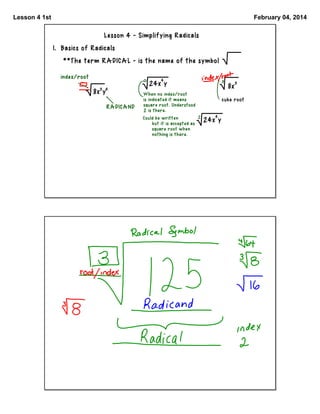 Lesson 4 1st February 04, 2014
Lesson 4 - Simplifying Radicals
I. Basics of Radicals
**The term RADICAL - is the name of the symbol √
index/root
RADICAND
When no index/root
is indicated it means
square root. Understood
2 is there.
Could be written
but it is accepted as
square root when
nothing is there.
²√24x⁴y
index/root
cube root
Radical Symbol
3
root/index
125
Radicand
Radical
³√8
√16
index
2